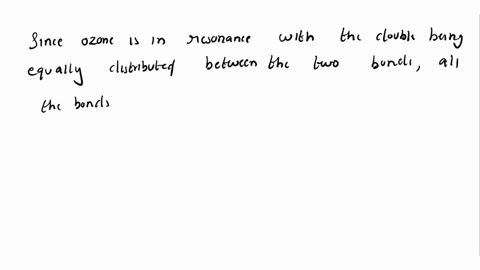 Since ozone is in resonance with the double being
equally distributed between the two bonds, all
the bonds